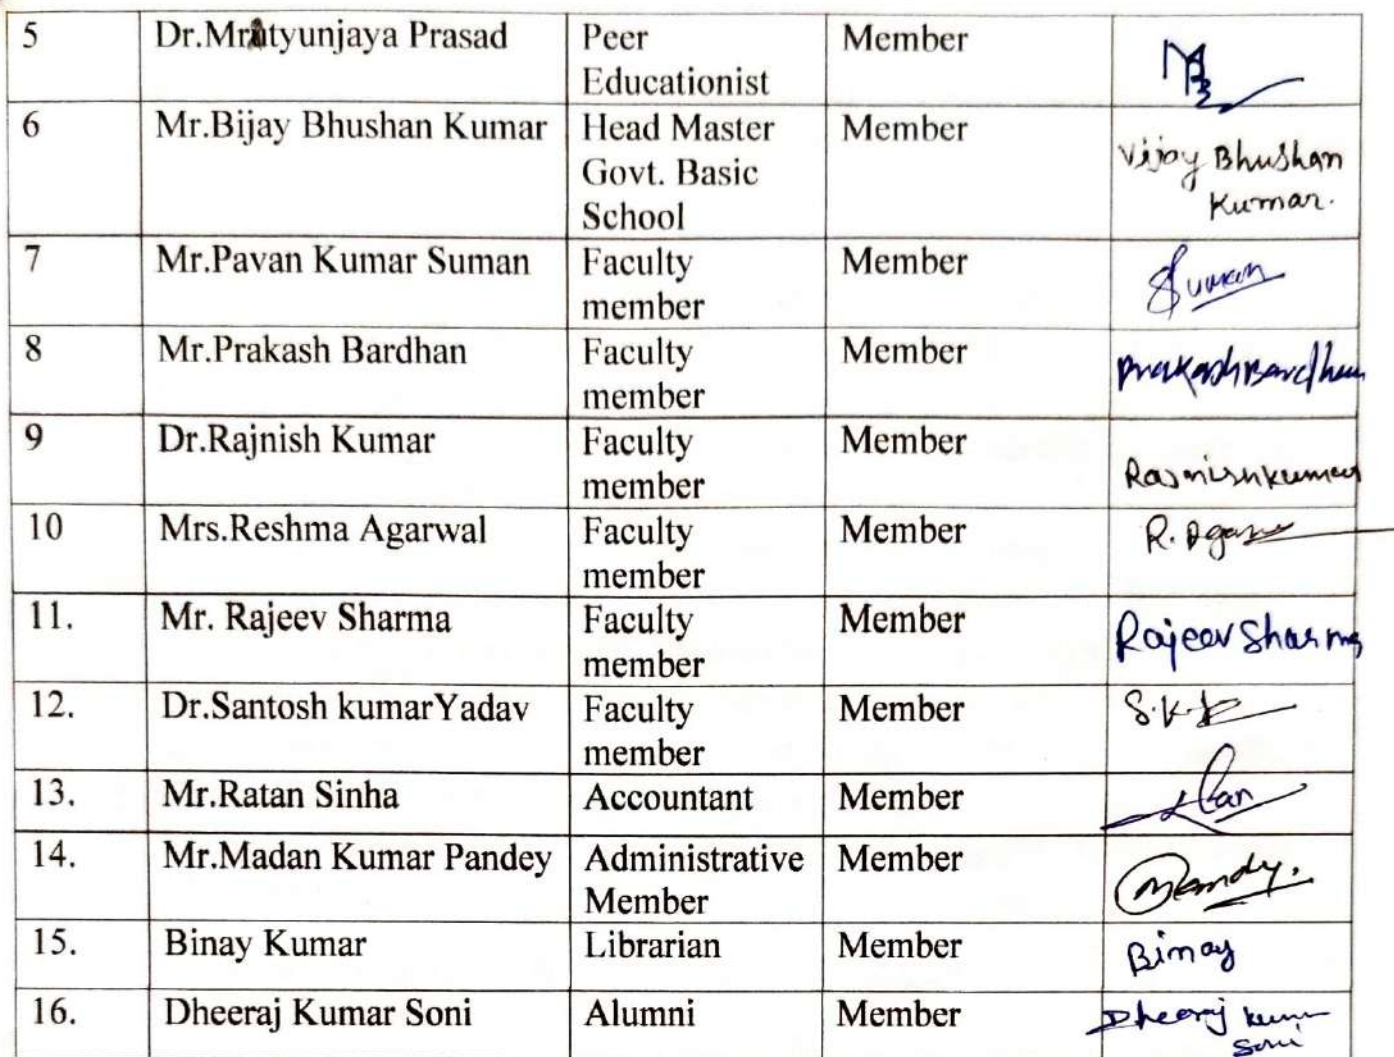 5 Dr.Mrutyunjaya Prasad Peer Member
Educationist
6 Mr.Bijay Bhushan Kumar Head Master Member
Govt. Basic Vijay Bhushan
School Kumar.
7 Mr.Pavan Kumar Suman Faculty Member Suman
member
8 Mr.Prakash Bardhan Faculty Member Prakash Bardhan
member
9 Dr.Rajnish Kumar Faculty Member
member Rajnish kumar
10 Mrs.Reshma Agarwal Faculty Member R.
member
11. Mr. Rajeev Sharma Faculty Member Rajeev Sharma
member
12. Dr.Santosh kumarYadav Faculty Member S.K.
member
13. Mr.Ratan Sinha Accountant Member
14. Mr.Madan Kumar Pandey Administrative Member
Member
15. Binay Kumar Librarian Member Binay
16. Dheeraj Kumar Soni Alumni Member Dheeraj kumar
Soni